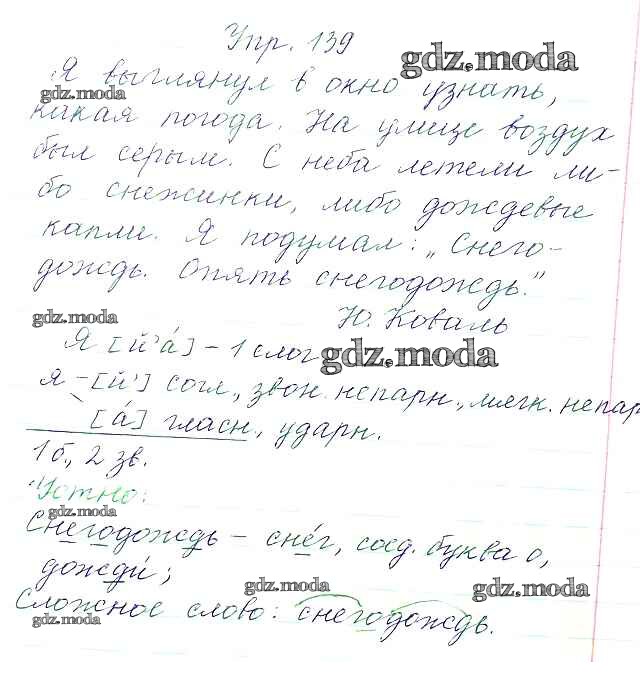 Упр. 139
gdz.moda
Я выглянул в окно узнать,
gdz.moda
какая погода. На улице воздух
был серым. С неба летели ли-
бо снежинки, либо дождевые
капли. Я подумал: „Снего-
дождь. Опять снегодождь."
gdz.moda
Ю. Коваль
Я [й'а́] – 1 слог
gdz.moda
я – [й'] согл., звон. непарн., мягк. непар
[а́] гласн., ударн.
1 б., 2 зв.
Устно:
gdz.moda
Снегодождь – сне́г, соед. буква о,
дожди́;
gdz.moda
gdz.moda
Сложное слово: снегодождь.
gdz.moda